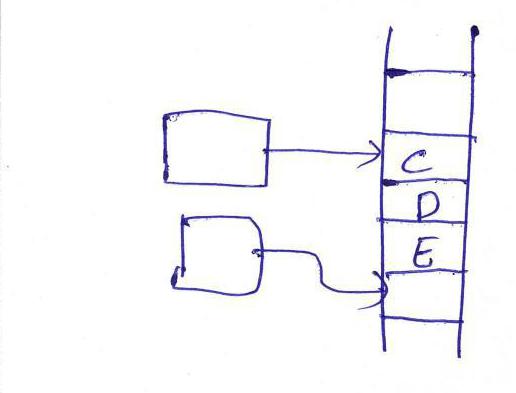 C
D
E